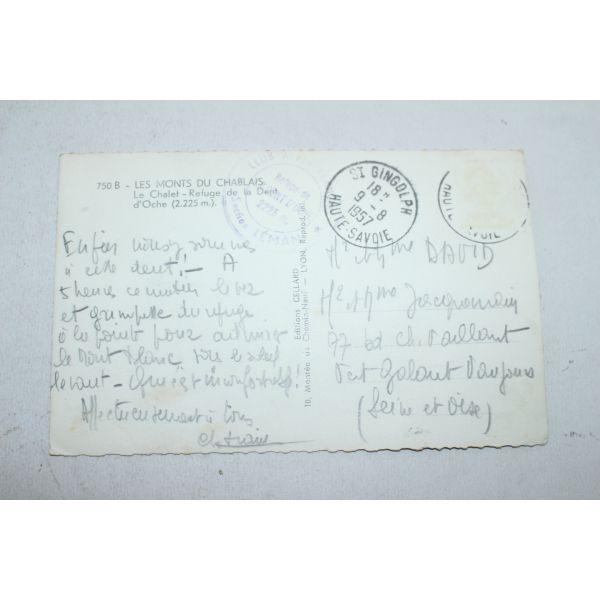 750 B - LES MONTS DU CHABLAIS.
Le Chalet-Refuge de la Dent
d'Oche (2.225 m.).
Refuge de
2225 m.
Section LÉMAN
ST GINGOLPH
18 H
9 - 8
1957
HAUTE-SAVOIE
Enfin nous y sommes
à cette dent! - A
5 heures ce matin lever
et grimpette du refuge
à la pointe pour admirer
le Mont Blanc sous le soleil
levant -
Affectueusement à tous
Editions CELLARD
10, Montée du Chemin-Neuf - LYON. Reprod. in
Mr et Mme DAVID
Mr et Mme Jacquemain
77 bd Ch. Vaillant
Vert Galant Vaujours
(Seine et Oise)